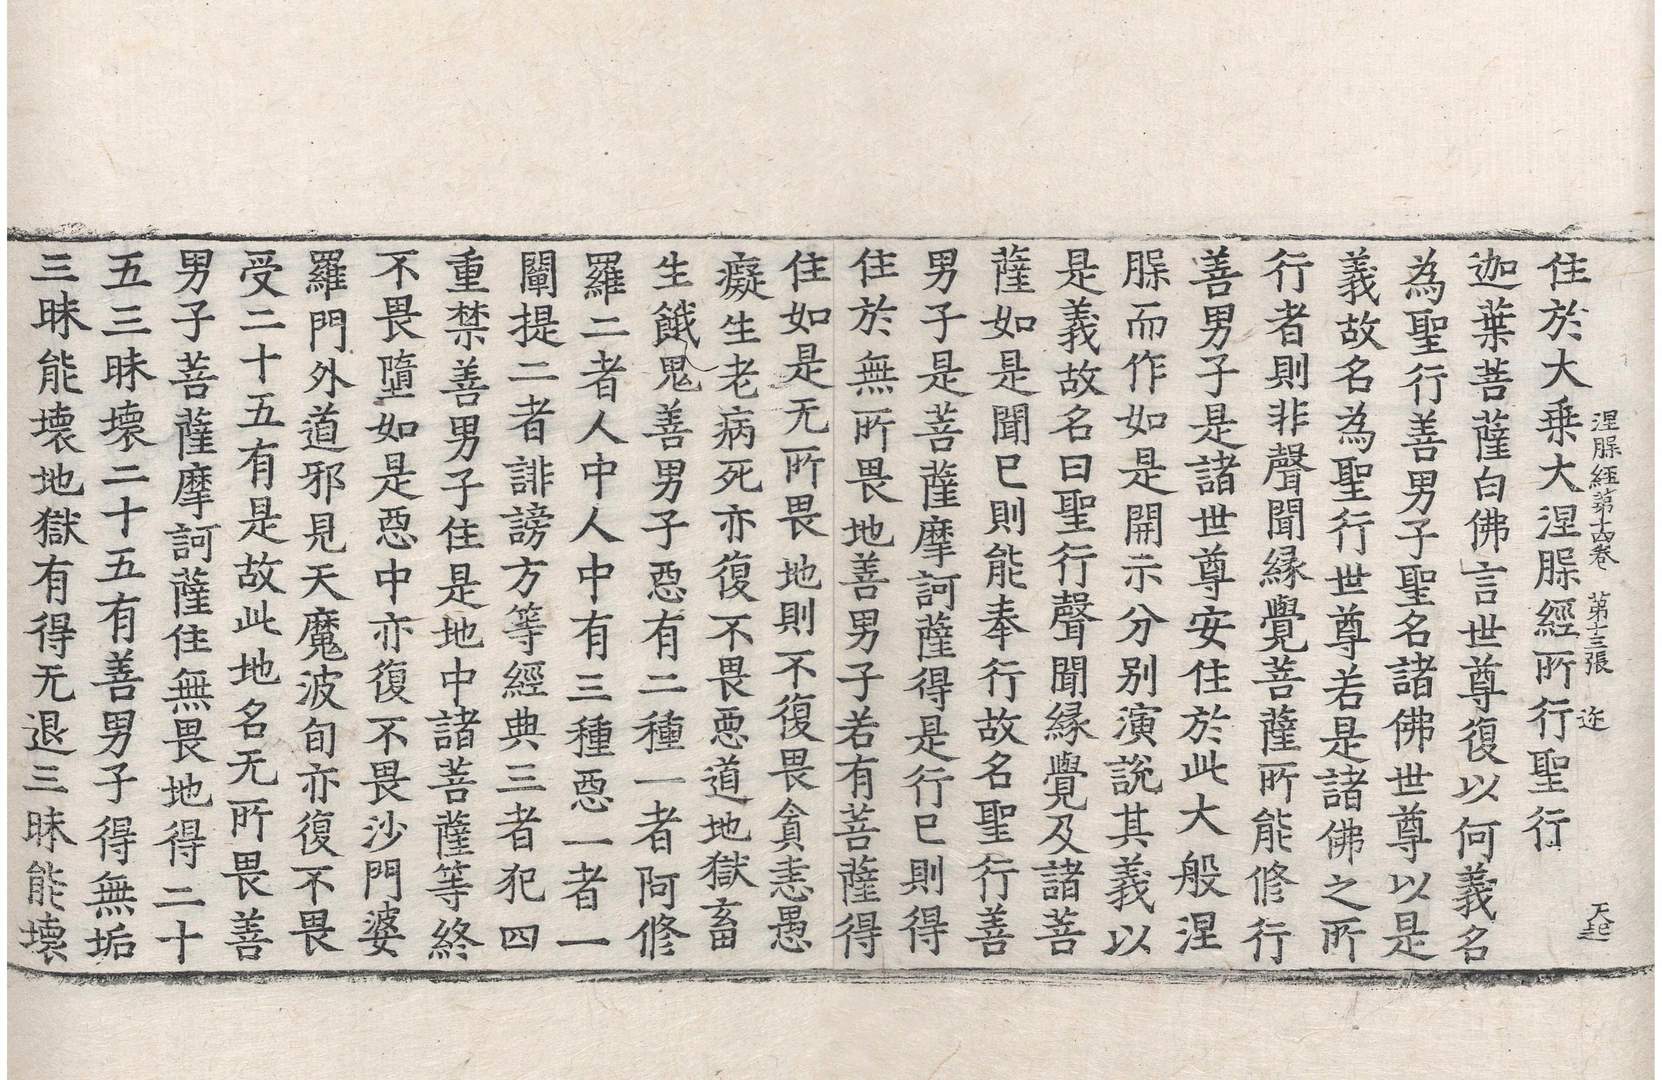 涅槃經第十四卷 第十三張 迩 天起
住於大乗大涅槃經所行聖行
迦葉菩薩白佛言世尊復以何義名
為聖行善男子聖名諸佛世尊以是
義故名為聖行世尊若是諸佛之所
行者則非聲聞縁覺菩薩所能修行
善男子是諸世尊安住於此大般涅
槃而作如是開示分别演説其義以
是義故名曰聖行聲聞縁覺及諸菩
薩如是聞已則能奉行故名聖行善
男子是菩薩摩訶薩得是行已則得
住於無所畏地善男子若有菩薩得
住如是无所畏地則不復畏貪恚愚
癡生老病死亦復不畏惡道地獄畜
生餓鬼善男子惡有二種一者阿修
羅二者人中人中有三種惡一者一
闡提二者誹謗方等經典三者犯四
重禁善男子住是地中諸菩薩等終
不畏墮如是惡中亦復不畏沙門婆
羅門外道邪見天魔波旬亦復不畏
受二十五有是故此地名无所畏善
男子菩薩摩訶薩住無畏地得二十
五三昧壞二十五有善男子得無垢
三昧能壞地獄有得无退三昧能壞